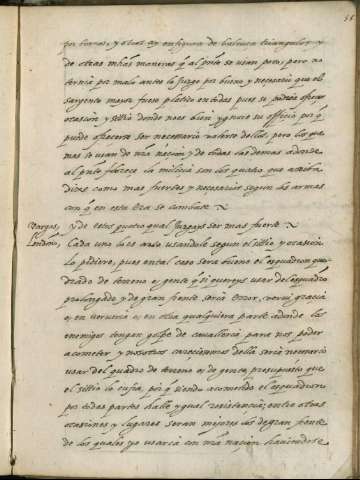 por tueras, y otras en figura de balanca triangulos, y
de otras mas maneras q al pnte se usan poco, pero no
ternia por malo antes lo juzgo por bueno y necesario que el
sargento mayor fuese platico en todas pues se podria ofrecer
ocasion, y sitio donde fuese bien y quiere su officio por q
puede ofrecerse ser necessario valerse dellos pero los que
mas se usan de nra nacion y de todas las demas adonde
al pnte florece la milicia son los quatro que arriba
dixe como mas fuertes y necesarios segun las armas
con q en esta Era se combate
Vargas y de estos quatro qual juzgays ser mas fuerte
Londoño Cada uno lo es usandole segun el sitio y ocasion
lo pidiere, pues en tal caso sera bueno el esquadron qua-
drado de terreno o, gente q si quereys usar del esquadron
prolongado y de gran frente seria Error, verbi gracia
si en berveria o, en otra qualquiera parte adonde los
enemigos tengan golpe de cavalleria para nos poder
acometer y nosotros careciessemos della seria necesario
usar del quadro de terreno o, de gente, presupuesto que
el sitio lo sufra, por q siendo acometido el esquadron
por todas partes halle ygual resistencia; en otras
ocasiones y lugares seran mejores los de gran frente
de los quales yo usaria con nra nacion haviendose